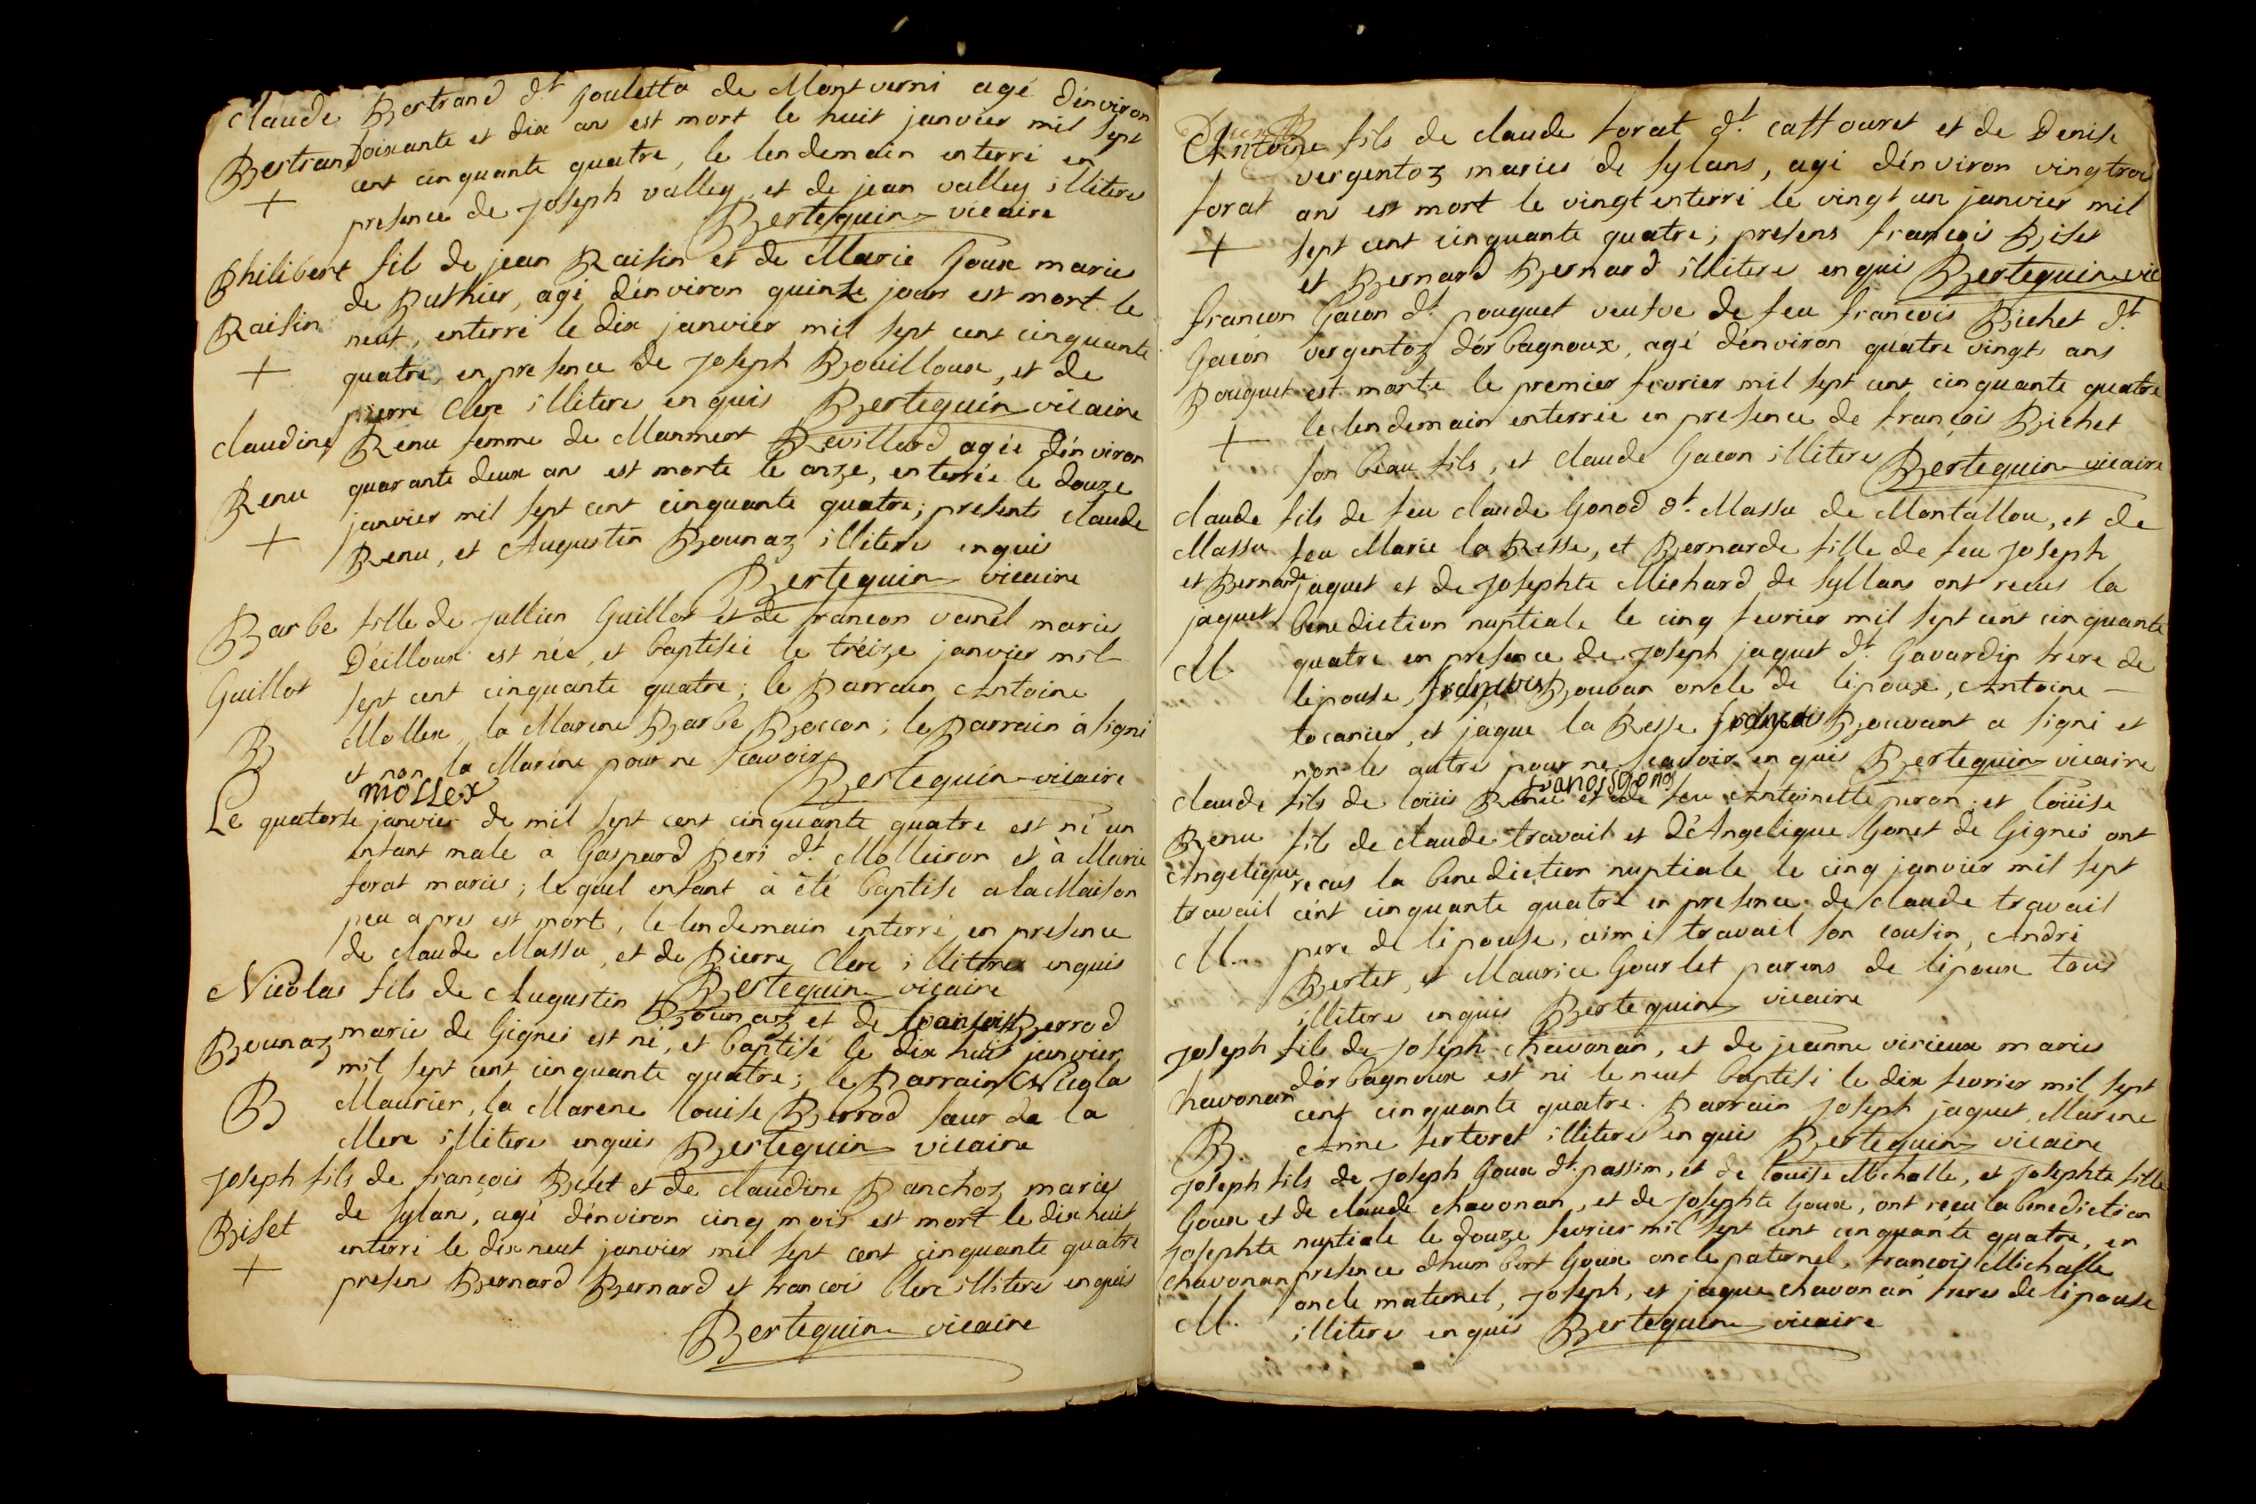 claude Bertrand dt Gouletta de Montverni agé dénviron
Bertrand soixante et dix ans est mort le huit janvier mil sept
cent cinquante quatre, le lendemain enterré en
+ presence de joseph valley, et de jean valley illiteres
Bertequin vicaire
Philibert fils de jean Raisin et de Marie Goux maries
de Buthier, agé dénviron quinze jours est mort le
Raisin neuf, enterré le dix janvier mil sept cent cinquante
+ quatre, en presence de Joseph Bouilloux, et de
pierre Clerc illiteres enquis Bertequin vicaire
claudine Renu femme de Mammert Revillard agée dénviron
quarante deux ans est morte le onze, enterrée le douze
Renu janvier mil sept cent cinquante quatre; presents claude
+ Renu, et Augustin Bounaz illiteres enquis
Bertequin vicaire
Barbe fille de jullien Guillot et de francon vanel maries
Déilloux est née, et baptisée le tréize janvier mil
Guillot sept cent cinquante quatre; le Parrain Antoine
Mollex, la Marene Barbe Boccon; le Parrain à signé
B et non la Marene pour ne scavoir Bertequin vicaire
mollex
Le quatorse janvier de mil sept cent cinquante quatre est né un
enfant male a Gaspard Peri dt. Molleiron et à Marie
forat maries; lequel enfant à été baptise a la Maison
peu apres est mort, le lendemain enterré en presence
de claude Massu, et de Pierre Clerc illiteres enquis
Bertequin vicaire
Nicolas fils de Augustin Bounaz et de francoise Berrod
Bounaz maries de Gignes est né, et baptisé le dix huit janvier
mil sept cent cinquante quatre; le Parrain Nicola
B Maurier, la Marene Louise Berrod sœur de la
Mere illiteres enquis Bertequin vicaire
Joseph fils de françois Biset et de claudine Panchoz maries
de sylans, agé dénviron cinq mois est mort le dix huit
Biset enterré le dix neuf janvier mil sept cent cinquante quatre
+ presens Bernard Bernard et francois Clerc illiteres enquis
Bertequin vicaire
Antoine fils de claude forat dt. cattouret et de Denise
vergentoz maries de sylans, agé dénviron vingtrois
forat ans est mort le vingt enterré le vingt un janvier mil
+ sept cent cinquante quatre; presens francois Biset
et Bernard Bernard illiteres enquis Bertequin vic
francon Gacon dt. pouguet veufve de feu francois Richet dt.
Gacon vergentoz dórbagnoux, agé dénviron quatre vingt ans
Pouguet est morte le premier fevrier mil sept cent cinquante quatre
+ le lendemain enterrée en presence de françois Richet
son beau fils, et claude Gacon illiteres Bertequin vicaire
claude fils de feu claude Gonod dt. Massu de Montallou, et de
Massu feu Marie la Resse, et Bernarde fille de feu joseph
et Bernarde jaquet et de josephte Michard de syllans ont recus la
jaquet benediction nuptiale le cinq fevrier mil sept cent cinquante
M. quatre en presence de joseph jaquet dt. Gavardin frere de
lépouse, françois Bouvan oncle de lépoux, Antoine
tocanier, et jaque la Resse françois Bouvant a signé et
non les autres pour ne scavoir enquis Bertequin vicaire
françois gonod
claude fils de loüis Renu et de feu Antoinette peron, et loüise
Renu fils de claude travail et dAngelique Gonet de Gignes ont
Angelique recus la benediction nuptiale le cinq janvier mil sept
travail cént cinquante quatre en presence de claude travail
M. pere de lépouse, aimé travail son cousin, André
Bertet, et Maurice Gourlet parens de lépoux tous
illiteres enquis Bertequin vicaire
joseph fils de Joseph chavonan, et de jeanne virieux maries
dórbagnoux est né le neuf baptisé le dix fevrier mil sept
chavonan cent cinquante quatre. Parrain joseph jaquet, Marene
B. Anne fertoret illiteres enquis Bertequin vicaire
joseph fils de joseph Goux dt. passim, et de louise Michalle, et josephte fille
Goux et de claude chavonan, et de josephte Goux, ont reçu la benediction
josephte nuptiale le douze fevrier mil sept cent cinquante quatre, en
chavonan presence dhumbert Goux oncle paternel, françois Michalle
M. oncle maternel, joseph, et jaque chavonan freres de lépouse
illiteres enquis Bertequin vicaire